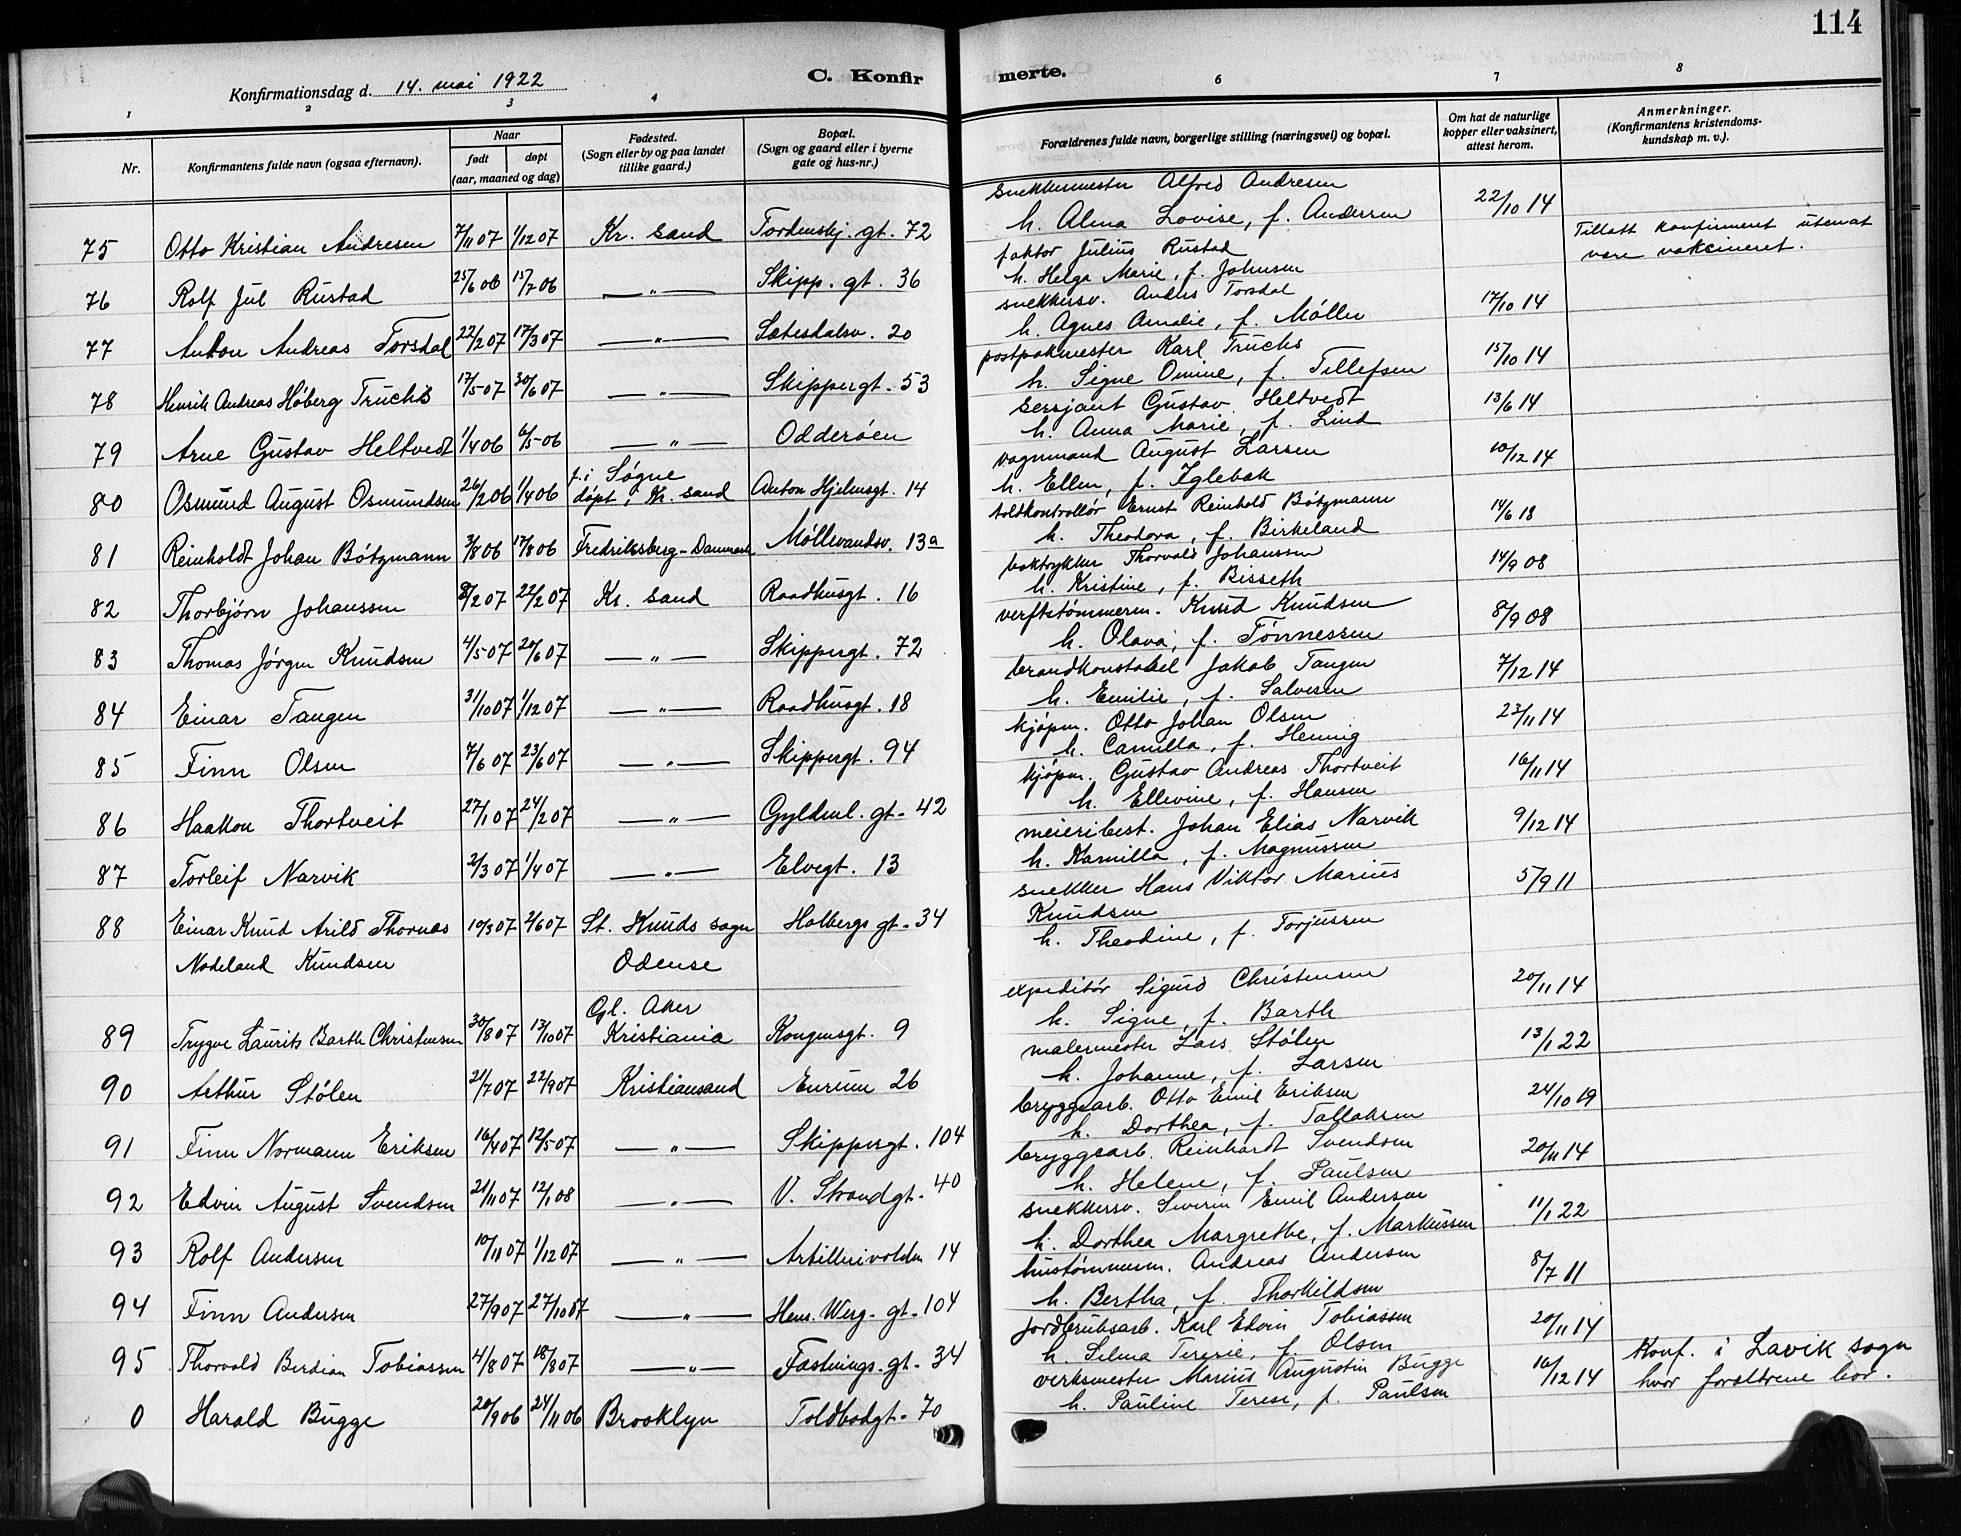 114
Konfirmationsdag d. 14. mai 1922
C. Konfirmerte.
1 2 3 4 6 7 8
Nr.
Konfirmantens fulde navn (ogsaa efternavn).
Naar
født døpt
(aar, maaned og dag)
Fødested.
(Sogn eller by og paa landet
tillike gaard.)
Bopæl.
(Sogn og gaard eller i byerne
gate og hus-nr.)
Forældrenes fulde navn, borgerlige stilling (næringsvei) og bopæl.
Om hat de naturlige
kopper eller vaksinert,
attest herom.
Anmerkninger.
(Konfirmantens kristendoms-
kundskap m. v.).
75 Otto Kristian Andresen 7/11 07 1/12 07 Kr. sand Tordenskj. gt. 72
snekkermester Alfred Andresen 22/10 14
h. Alma Lovise, f. Andersen
76 Rolf Jul Rustad 25/6 06 15/7 06 —"— Skipp. gt. 36
faktor Julius Rustad
h. Helga Marie, f. Johnsen
Tillatt konfirmert uten at
være vaksineret.
77 Anton Andreas Torsdal 22/2 07 17/3 07 —"— Sætesdalsv. 20
snekkersv. Anders Torsdal 17/10 14
h. Agnes Amalie, f. Møller
78 Henrik Andreas Høberg Truchs 17/5 07 30/6 07 —"— Skippergt. 53
postpakmester Karl Truchs 15/10 14
h. Signe Omine, f. Tellefsen
79 Arne Gustav Heltvedt 1/4 06 6/5 06 —"— Odderøen
sersjant Gustav Heltvedt 13/6 14
h. Anna Marie, f. Lind
80 Osmund August Osmundsen 26/2 06 1/4 06 f. i Søgne
døpt i Kr. sand Anton Hjelmsgt. 14
vognmand August Larsen 10/12 14
h. Ellen, f. Iglebæk
81 Reinholdt Johan Bötzmann 3/8 06 17/8 06 Fredriksberg - Danmark Møllevandsv. 13a
toldkontrollør Ernst Reinhold Bötzmann 14/6 18
h. Theodora, f. Birkeland
82 Thorbjørn Johanssen 8/2 07 22/2 07 Kr. sand Raadhusgt. 16
boktrykker Thorvald Johanssen 14/9 08
h. Kristine, f. Bisseth
83 Thomas Jørgen Knudsen 4/5 07 20/6 07 —"— Skippergt. 72
verftstømmerm. Knud Knudsen 8/9 08
h. Olava, f. Tønnessen
84 Einar Tangen 31/10 07 1/12 07 —"— Raadhusgt. 18
brandkonstabel Jakob Tangen 7/12 14
h. Emilie, f. Salvesen
85 Finn Olsen 7/6 07 23/6 07 —"— Skippergt. 94
kjøpm. Otto Johan Olsen 23/11 14
h. Camilla, f. Hennig
86 Haakon Thortveit 27/1 07 24/2 07 —"— Gyldenl. gt. 42
kjøpm. Gustav Andreas Thortveit 16/11 14
h. Ellevine, f. Hansen
87 Torleif Narvik 2/3 07 1/4 07 —"— Elvegt. 13
meieribest. Johan Elias Narvik 9/12 14
h. Kamilla, f. Magnussen
88 Einar Knud Arild Thornæs 10/3 07 2/6 07 St. Knuds sogn Holbergs gt. 34
Nodeland Knudsen Odense
snekker Hans Viktor Marius 5/9 11
Knudsen
h. Theodine, f. Torjussen
89 Trygve Laurits Barth Christensen 30/8 07 13/10 07 Gl. Aker
Kristiania Kongensgt. 9
expeditør Sigurd Christensen 20/11 14
h. Signe, f. Barth
90 Arthur Stölen 21/7 07 22/9 07 Kristiansand Enrum 26
malermester Lars Stölen 13/1 22
h. Johanne, f. Larsen
91 Finn Normann Eriksen 16/4 07 12/5 07 —"— Skippergt. 104
bryggearb. Otto Emil Eriksen 24/10 19
h. Dorthea, f. Tallaksen
92 Edvin August Svendsen 21/11 07 12/1 08 —"— V. Strandgt. 40
bryggearb. Reinhardt Svendsen 20/11 14
h. Helene, f. Paulsen
93 Rolf Andersen 10/11 07 1/12 07 —"— Artillerivolden 14
snekkersv. Severin Emil Andersen 11/1 22
h. Dorthea Margrethe, f. Markussen
94 Finn Andersen 27/9 07 27/10 07 —"— Hen. Werg. gt. 104
hustømmerm. Andreas Andersen 8/7 11
h. Bertha, f. Thorkildsen
95 Thorvald Berdian Tobiassen 4/8 07 18/8 07 —"— Fæstnings. gt. 34
jordbruksarb. Karl Edvin Tobiassen 20/11 14
h. Selma Teresie, f. Olsen
0 Harald Bugge 20/9 06 24/11 06 Brooklyn Toldbodgt. 70
verksmester Marius Augustin Bugge 16/12 14
h. Pauline Terese, f. Paulsen
Konf. i Lavik sogn
hvor forældrene bor.